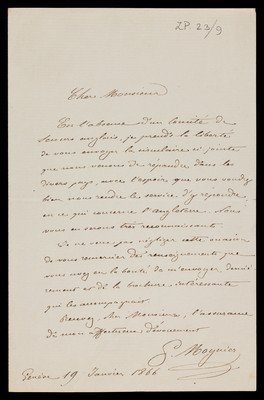 ZP. 23/9
Cher Monsieur
En l'absence d'un Comité de
secours anglais, je prends la liberté
de vous envoyer la circulaire ci jointe
que nous venons de répandre dans les
divers pays, avec l'espoir que vous voudrez
bien nous rendre le service d'y répondre
en ce qui concerne l'Angleterre. Nous
vous en serons très reconnaissants.
Je ne veux pas négliger cette occasion
de vous remercier des renseignements que
vous avez eu la bonté de m'envoyer, dernièrement
et de la brochure intéressante
qui les accompagnait
Recevez, cher Monsieur, l'assurance
de mon affectueux dévouement
G. Moynier
Genève 19 Janvier 1866